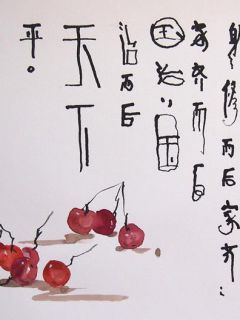 身修而后家齐；
家齐而后
国治；国
治而后
天下
平。